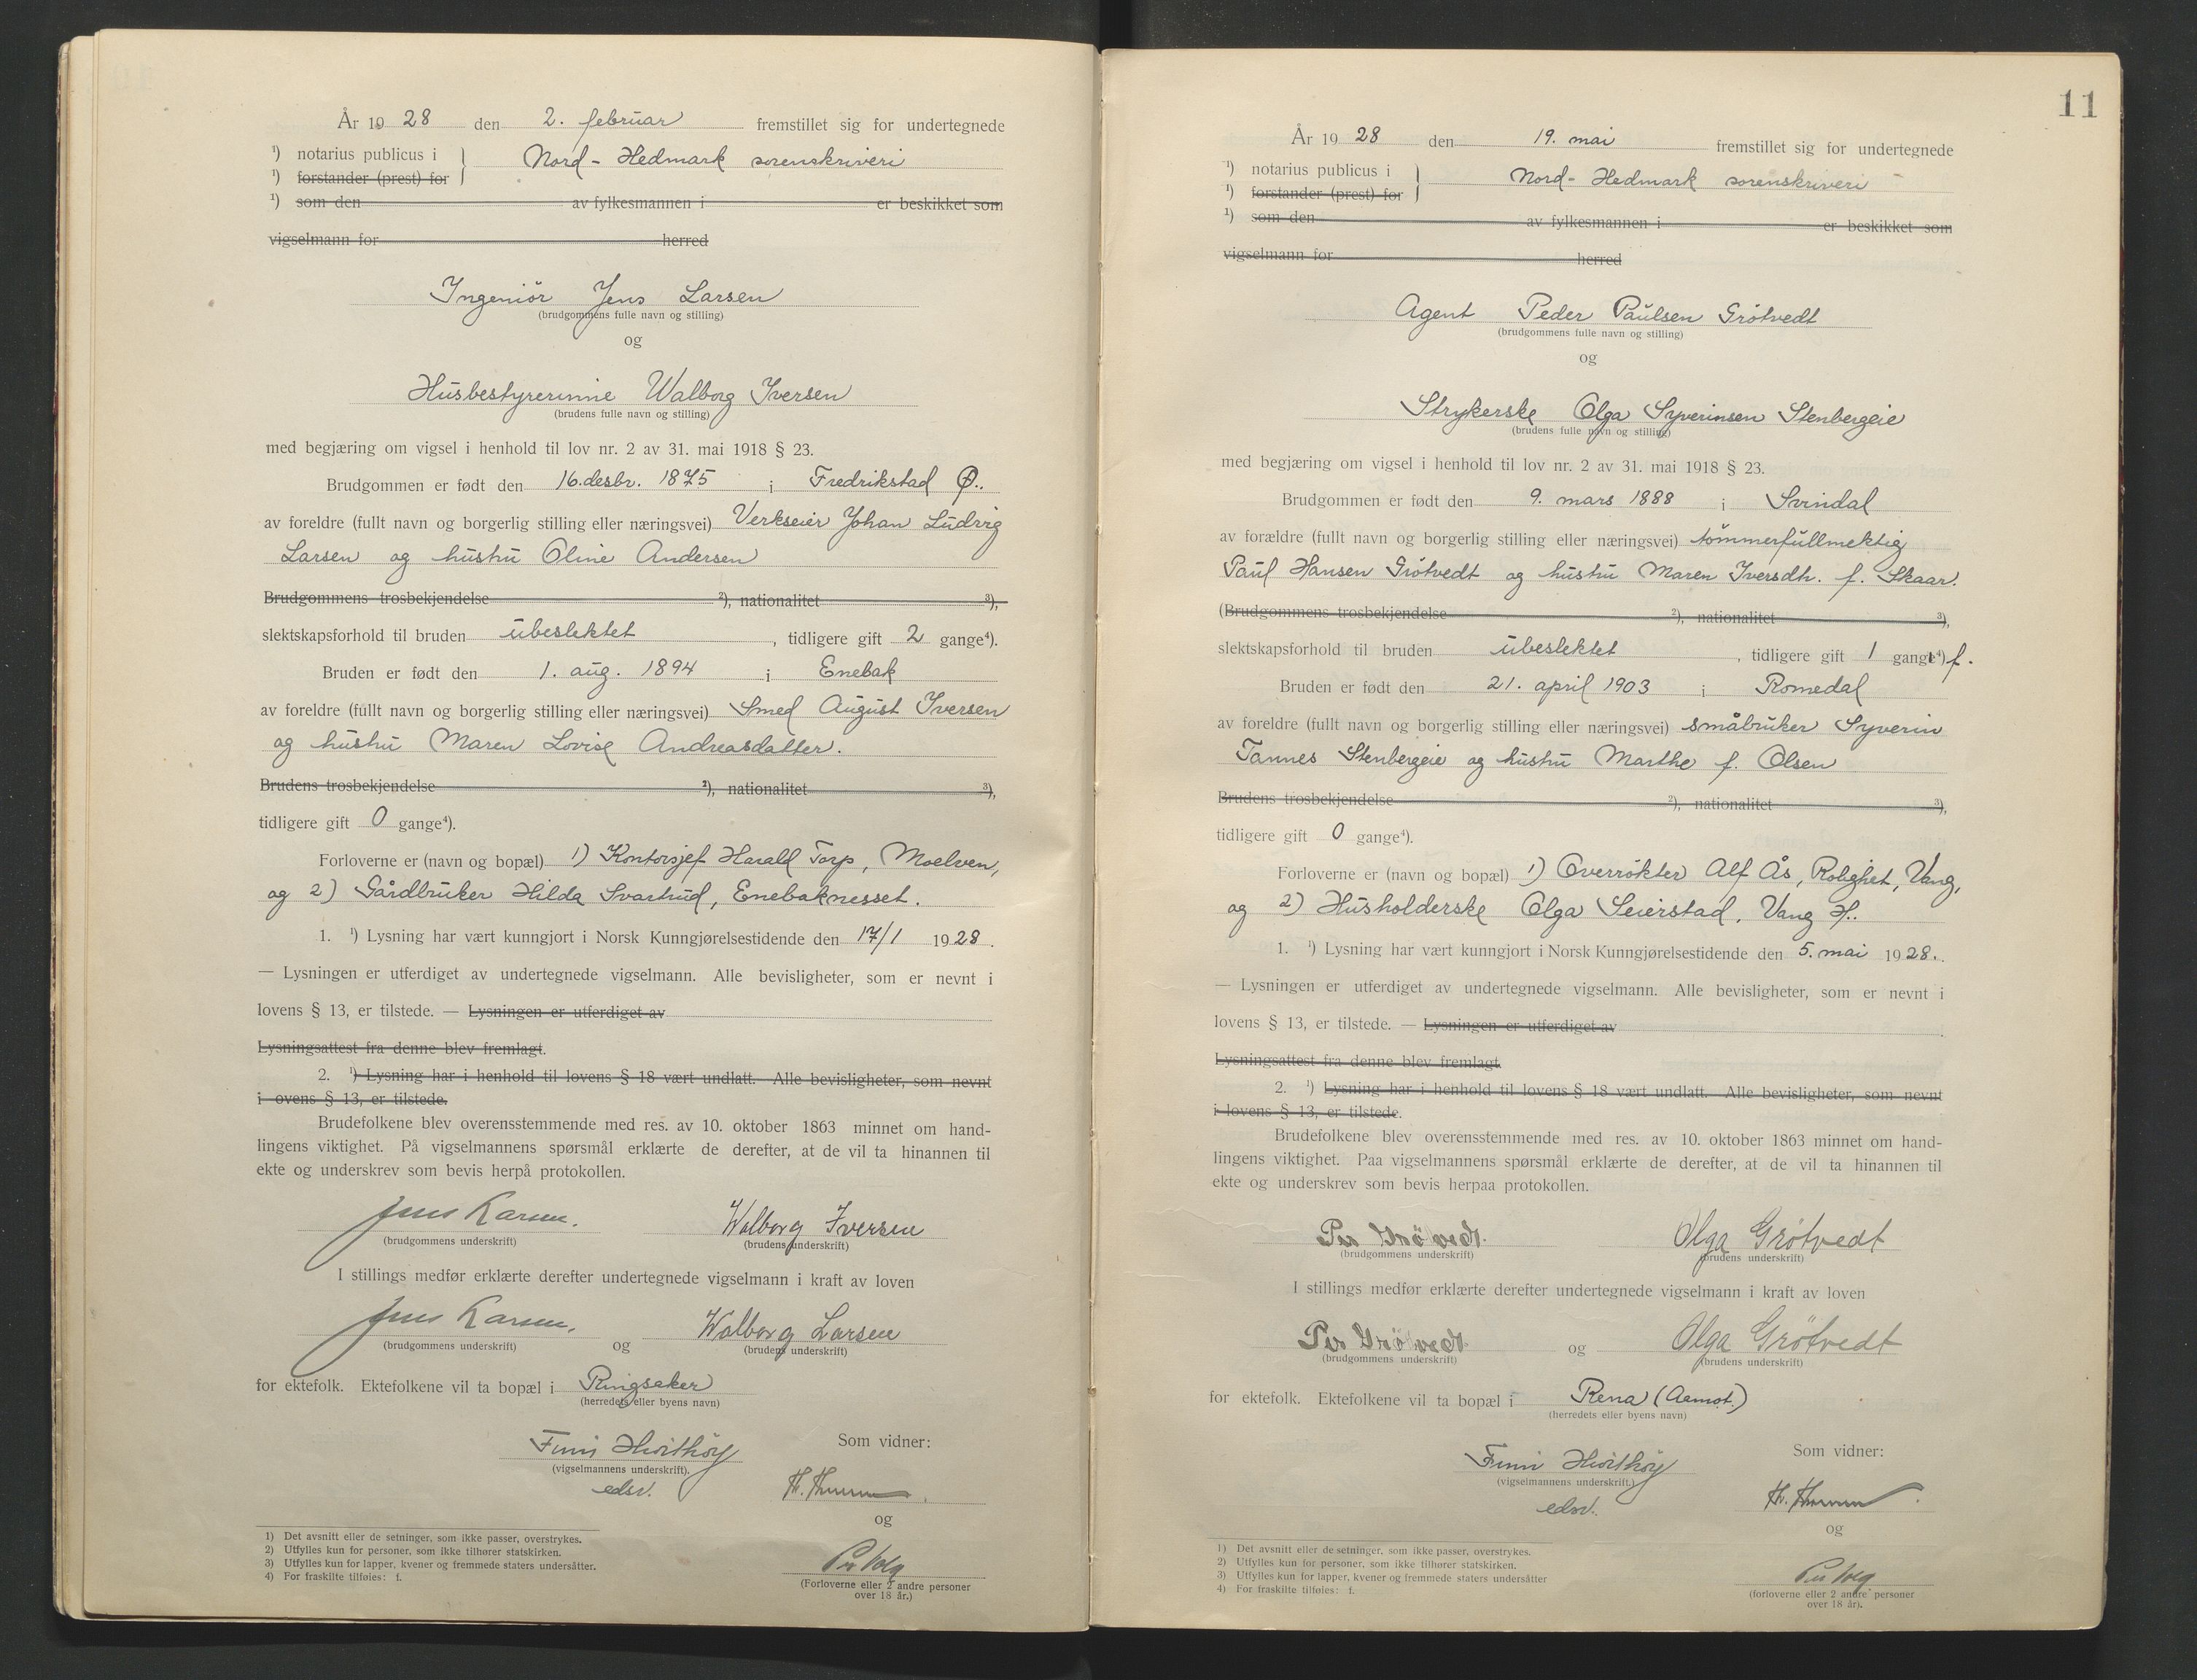 År 1928 den 2. februar fremstillet sig for undertegnede
¹) notarius publicus i Nord-Hedmark sorenskriveri
¹) forstander (prest) for
¹) som den av fylkesmannen i er beskikket som
vigselmann for herred
Ingeniör Jens Larsen
(brudgommens fulle navn og stilling)
og
Husbestyrerinne Walborg Iversen
(brudens fulle navn og stilling)
med begjæring om vigsel i henhold til lov nr. 2 av 31. mai 1918 § 23.
Brudgommen er født den 16. desbr. 1875 i Fredrikstad Ø..
av foreldre (fullt navn og borgerlig stilling eller næringsvei) Verkseier Johan Ludvig
Larsen og hustru Oline Andersen
Brudgommens trosbekjendelse ²), nationalitet ³),
slektskapsforhold til bruden ubeslektet, tidligere gift 2 gange⁴).
Bruden er født den 1. aug. 1894 i Enebak
av foreldre (fullt navn og borgerlig stilling eller næringsvei) Smed August Iversen
og hustru Maren Lovise Andreasdatter.
Brudens trosbekjendelse ²), nationalitet ³),
tidligere gift 0 gange⁴).
Forloverne er (navn og bopæl) 1) Kontorsjef Harald Torp, Moelven,
og 2) Gårdbruker Hilda Svartrud, Enebaknesset.
1. ¹) Lysning har vært kunngjort i Norsk Kunngjørelsestidende den 17/1 1928.
— Lysningen er utferdiget av undertegnede vigselmann. Alle bevisligheter, som er nevnt i
lovens § 13, er tilstede. — Lysningen er utferdiget av
Lysningsattest fra denne blev fremlagt.
2. ¹) Lysning har i henhold til lovens § 18 vært undlatt. Alle bevisligheter, som nevnt
i ovens § 13, er tilstede.
Brudefolkene blev overensstemmende med res. av 10. oktober 1863 minnet om hand-
lingens viktighet. På vigselmannens spørsmål erklærte de derefter, at de vil ta hinannen til
ekte og underskrev som bevis herpå protokollen.
Jens Larsen. Walborg Iversen
(brudgommens underskrift) (brudens underskrift)
I stillings medfør erklærte derefter undertegnede vigselmann i kraft av loven
Jens Larsen. og Walborg Larsen
(brudgommens underskrift) (brudens underskrift)
for ektefolk. Ektefolkene vil ta bopæl i Ringsaker
(herredets eller byens navn)
Finn Hvithöy Som vidner:
(vigselmannens underskrift).
edsv.
og
(Forloverne eller 2 andre personer
over 18 år.)
1) Det avsnitt eller de setninger, som ikke passer, overstrykes.
2) Utfylles kun for personer, som ikke tilhører statskirken.
3) Utfylles kun for lapper, kvener og fremmede staters undersåtter.
4) For fraskilte tilføies: f.
11
År 1928 den 19. mai fremstillet sig for undertegnede
¹) notarius publicus i Nord-Hedmark sorenskriveri
¹) forstander (prest) for
¹) som den av fylkesmannen i er beskikket som
vigselmann for herred
Agent Peder Paulsen Grötvedt
(brudgommens fulle navn og stilling)
og
Strykerske Olga Syverinsen Stenbergeie
(brudens fulle navn og stilling)
med begjæring om vigsel i henhold til lov nr. 2 av 31. mai 1918 § 23.
Brudgommen er født den 9. mars 1888 i Svindal
av forældre (fullt navn og borgerlig stilling eller næringsvei) tömmerfullmektig
Paul Hansen Grötvedt og hustru Maren Iversdtr. f. Skaar.
(Brudgommens trosbekjendelse ²), nationalitet ³),
slektskapsforhold til bruden ubeslektet, tidligere gift 1 gang⁴) f.
Bruden er født den 21. april 1903 i Romedal
av foreldre (fullt navn og borgerlig stilling eller næringsvei) småbruker Syverin
Tannes Stenbergeie og hustru Marthe f. Olsen
Brudens trosbekjendelse ²), nationalitet ³),
tidligere gift 0 gange⁴).
Forloverne er (navn og bopæl) 1) Overrökter Alf Ås, Rolighet, Vang,
og 2) Husholderske Olga Seierstad, Vang H..
1. ¹) Lysning har vært kunngjort i Norsk Kunngjørelsestidende den 5. mai 1928.
— Lysningen er utferdiget av undertegnede vigselmann. Alle bevisligheter, som er nevnt i
lovens § 13, er tilstede. — Lysningen er utferdiget av
Lysningsattest fra denne blev fremlagt.
2. ¹) Lysning har i henhold til lovens § 18 vært undlatt. Alle bevisligheter, som nevnt
i lovens § 13, er tilstede.
Brudefolkene blev overensstemmende med res. av 10. oktober 1863 minnet om hand-
lingens viktighet. Paa vigselmannens spørsmål erklærte de derefter, at de vil ta hinannen til
ekte og underskrev som bevis herpaa protokollen.
Per Grötvedt. Olga Grötvedt
(brudgommens underskrift) (brudens underskrift)
I stillings medfør erklærte derefter undertegnede vigselmann i kraft av loven
Per Grötvedt. og Olga Grötvedt
(brudgommens underskrift) (brudens underskrift)
for ektefolk. Ektefolkene vil ta bopæl i Rena (Aamot.)
(herredets eller byens navn)
Finn Hvithöy Som vidner:
(vigselmannens underskrift.)
edsv.
og
(forloverne eller 2 andre personer
over 18 år).
1) Det avsnitt eller de setninger, som ikke passer, overstrykes.
2) Utfylles kun for personer, som ikke tilhører statskirken.
3) Utfylles kun for lapper, kvener og fremmede staters undersåtter
4) For fraskilte tilføies: f.